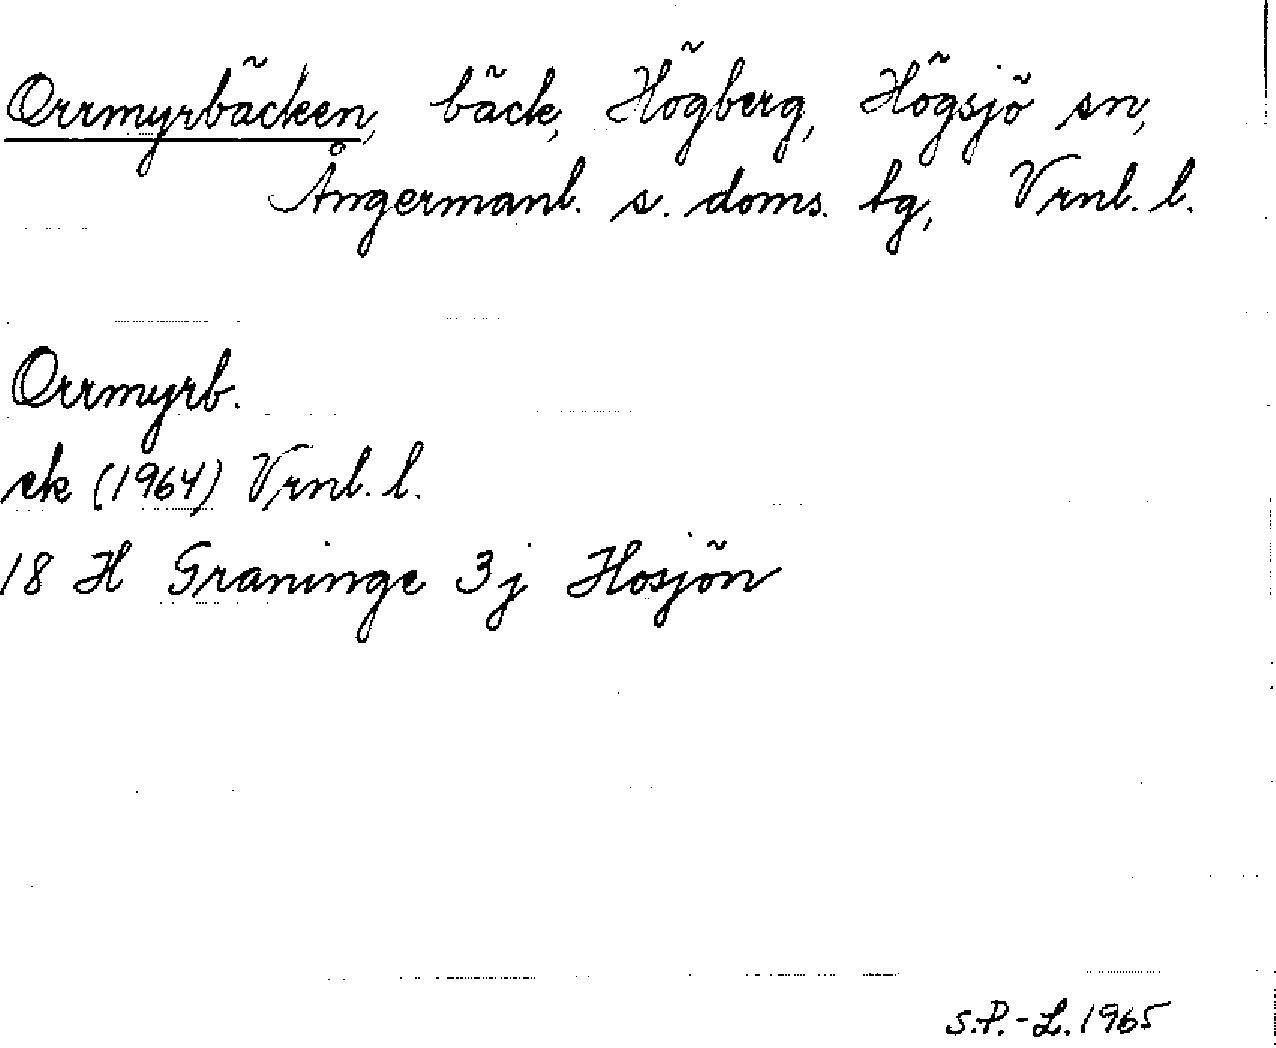 Orrmyrbäcken, bäck, Högberg, Högsjö sn,
Ångermanl. s. doms. tg, Vrnl. l.
Orrmyrb.
ek (1964) Vrnl. l.
18 H Graninge 3j Hosjön
S.P.-L. 1965